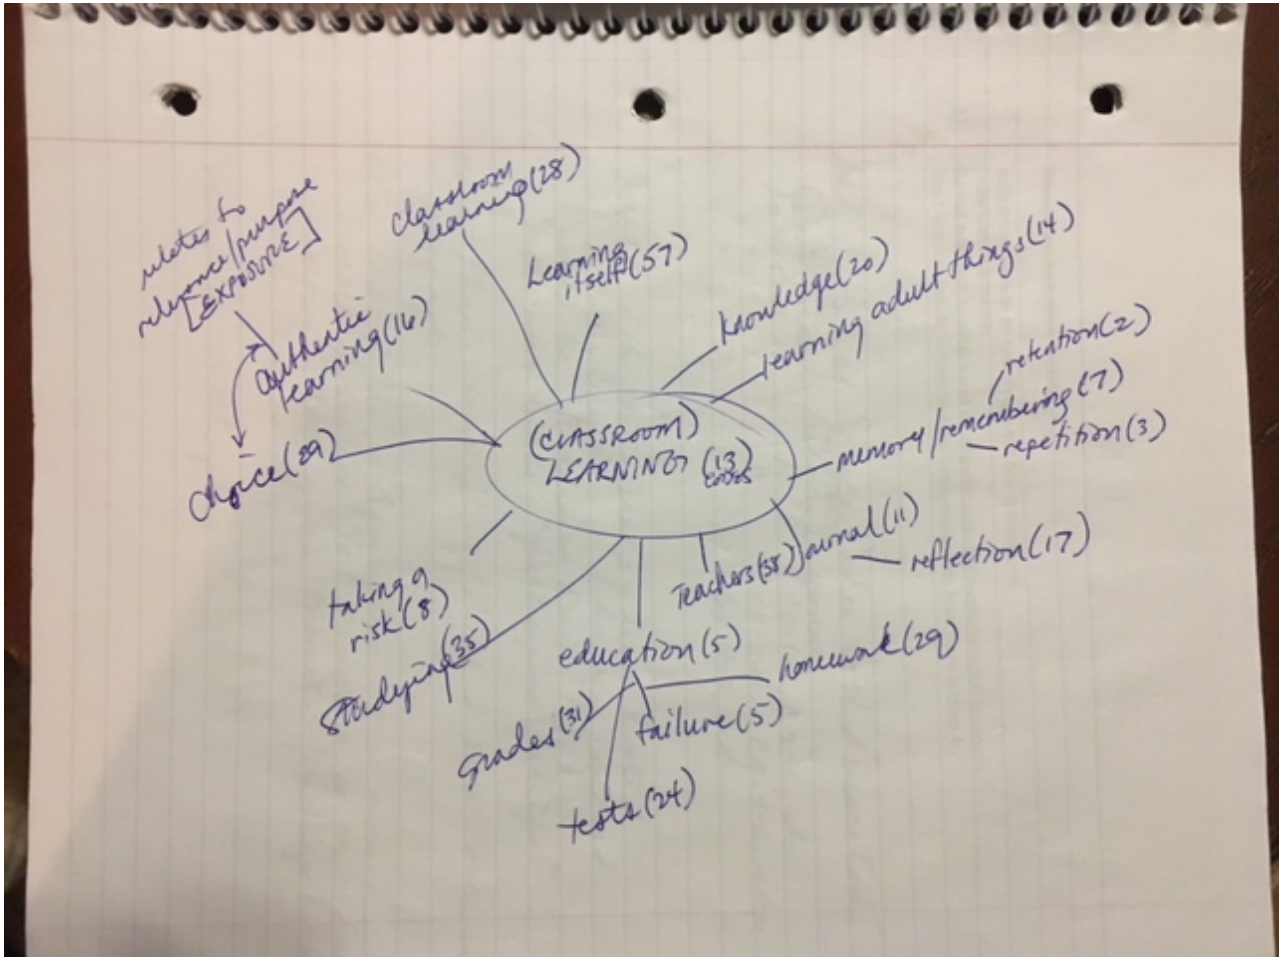 relates to
relevance/purpose
[EXPOSURE]
authentic
learning(16)
choice(29)
classroom
learning(28)
Learning
itself(57)
knowledge(20)
learning adult things(14)
retention(2)
memory/remembering(7)
repetition(3)
(CLASSROOM)
LEARNING (13)
codes
taking a
risk(8)
studying(35)
Teachers(38)
journal(11)
reflection(17)
education(5)
homework(29)
grades(31)
failure(5)
tests(24)